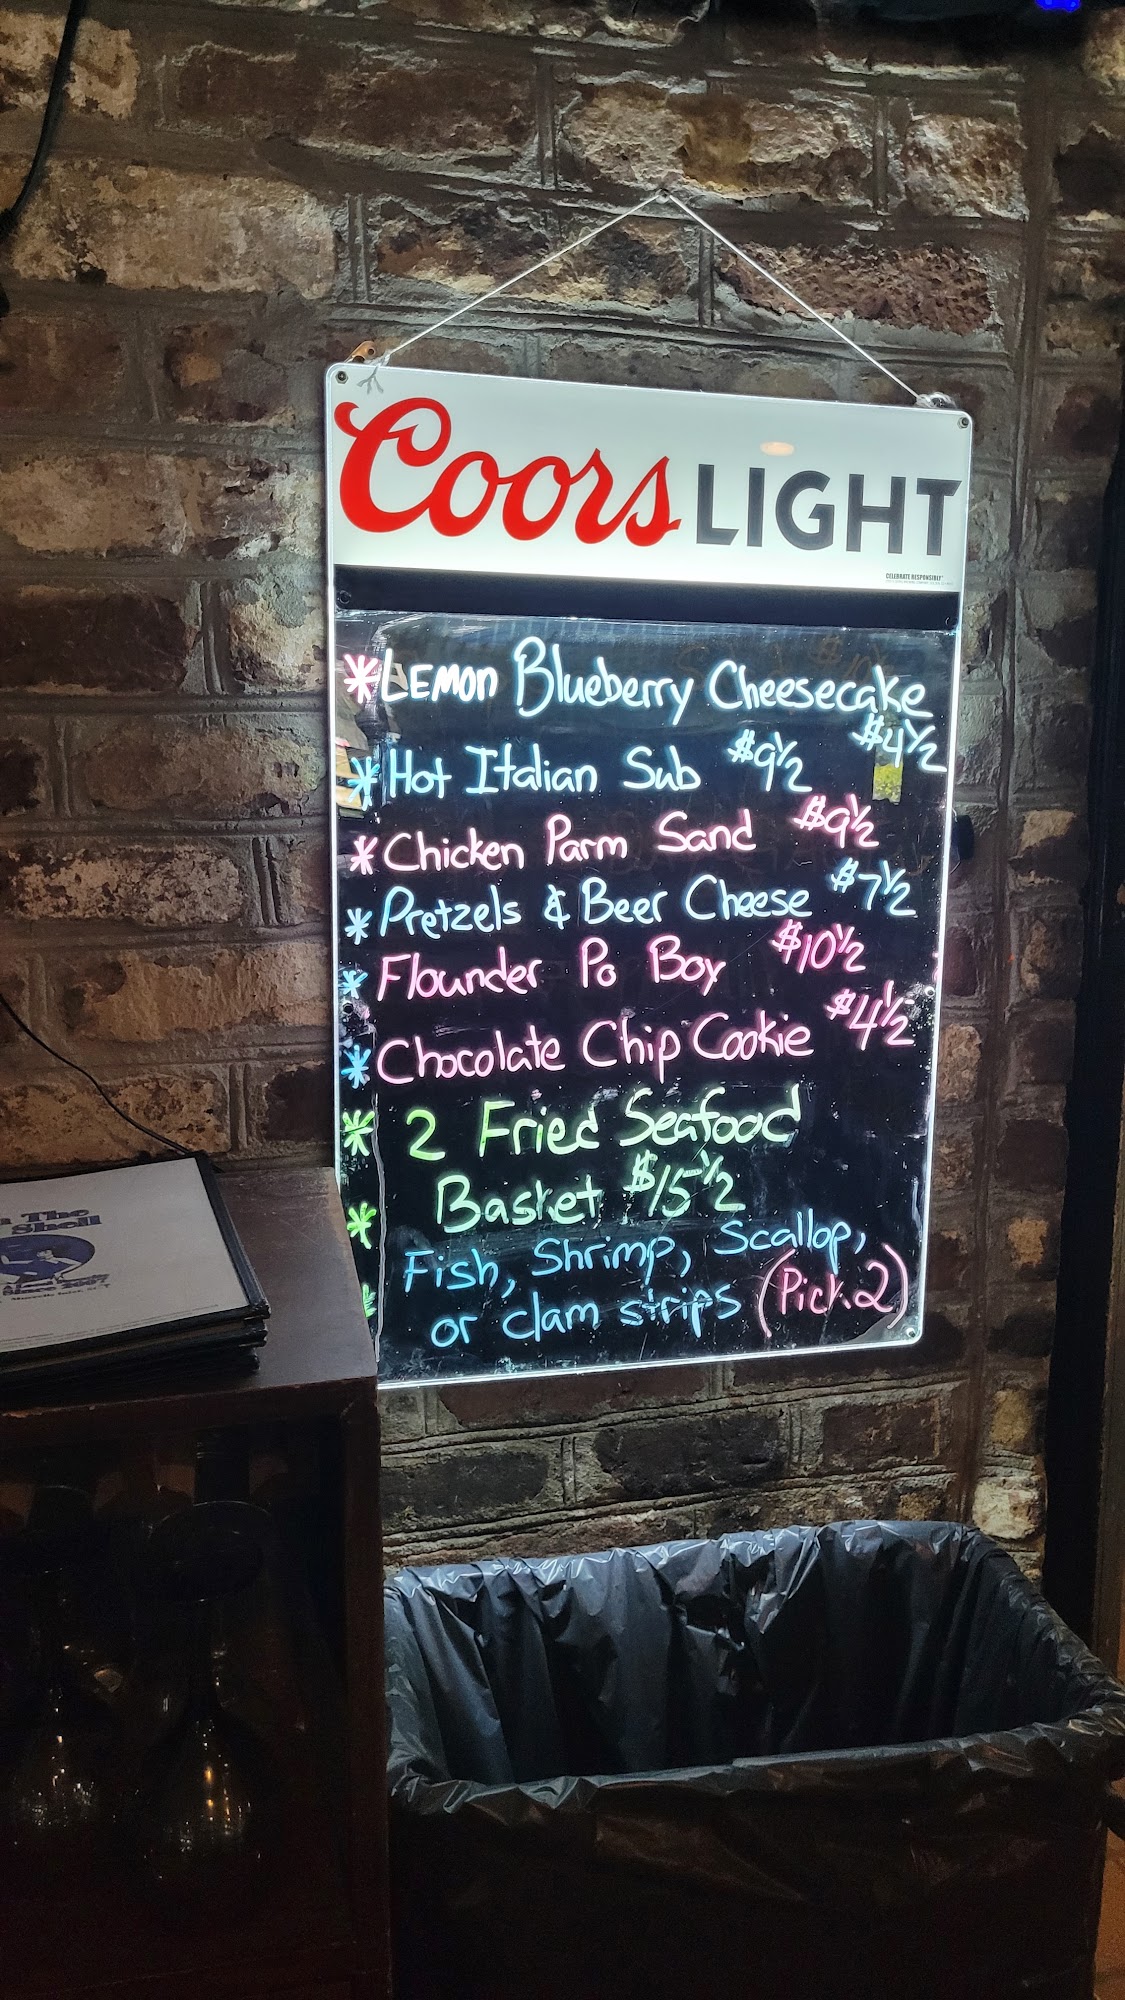 Coors LIGHT
CELEBRATE RESPONSIBLY
* LEMON Blueberry Cheesecake
$4 1/2
* Hot Italian Sub $9 1/2
* Chicken Parm Sand $9 1/2
* Pretzels & Beer Cheese $7 1/2
* Flounder Po Boy $10 1/2
* Chocolate Chip Cookie $4 1/2
* 2 Fried Seafood
* Basket $15 1/2
Fish, Shrimp, Scallop,
* or clam strips (Pick 2)
The
Shell